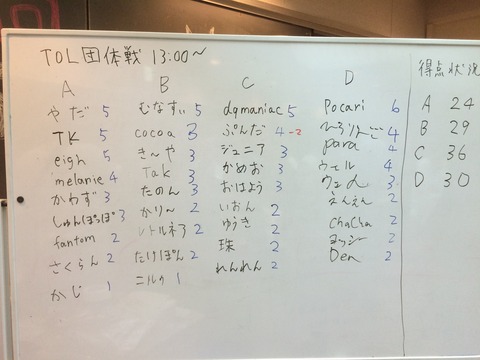 TOL団体戦 13:00～
A B C D
やだ 5 むなすい 5 dqmaniac 5 Pocari 6
TK 5 cocoa 3 ぷんだ 4 -2 4
eigh 5 きーや 3 ジュニア 3 para 4
melanie 4 Tak 3 かめお 3 ウェル 4
かわず 3 たのん 3 おはよう 3 3
しゅんぽっぽ 3 かりー 2 いおん 2 えんえん 2
fantom 2 レトルネア 2 ゆうき 2 ChaCha 2
さくらん 2 たけぽん 2 珠 2 ヨッシー 2
かじ 1 ニルゥ 1 れんれん 2 Den 2
得点状況
A 24
B 29
C 36
D 30